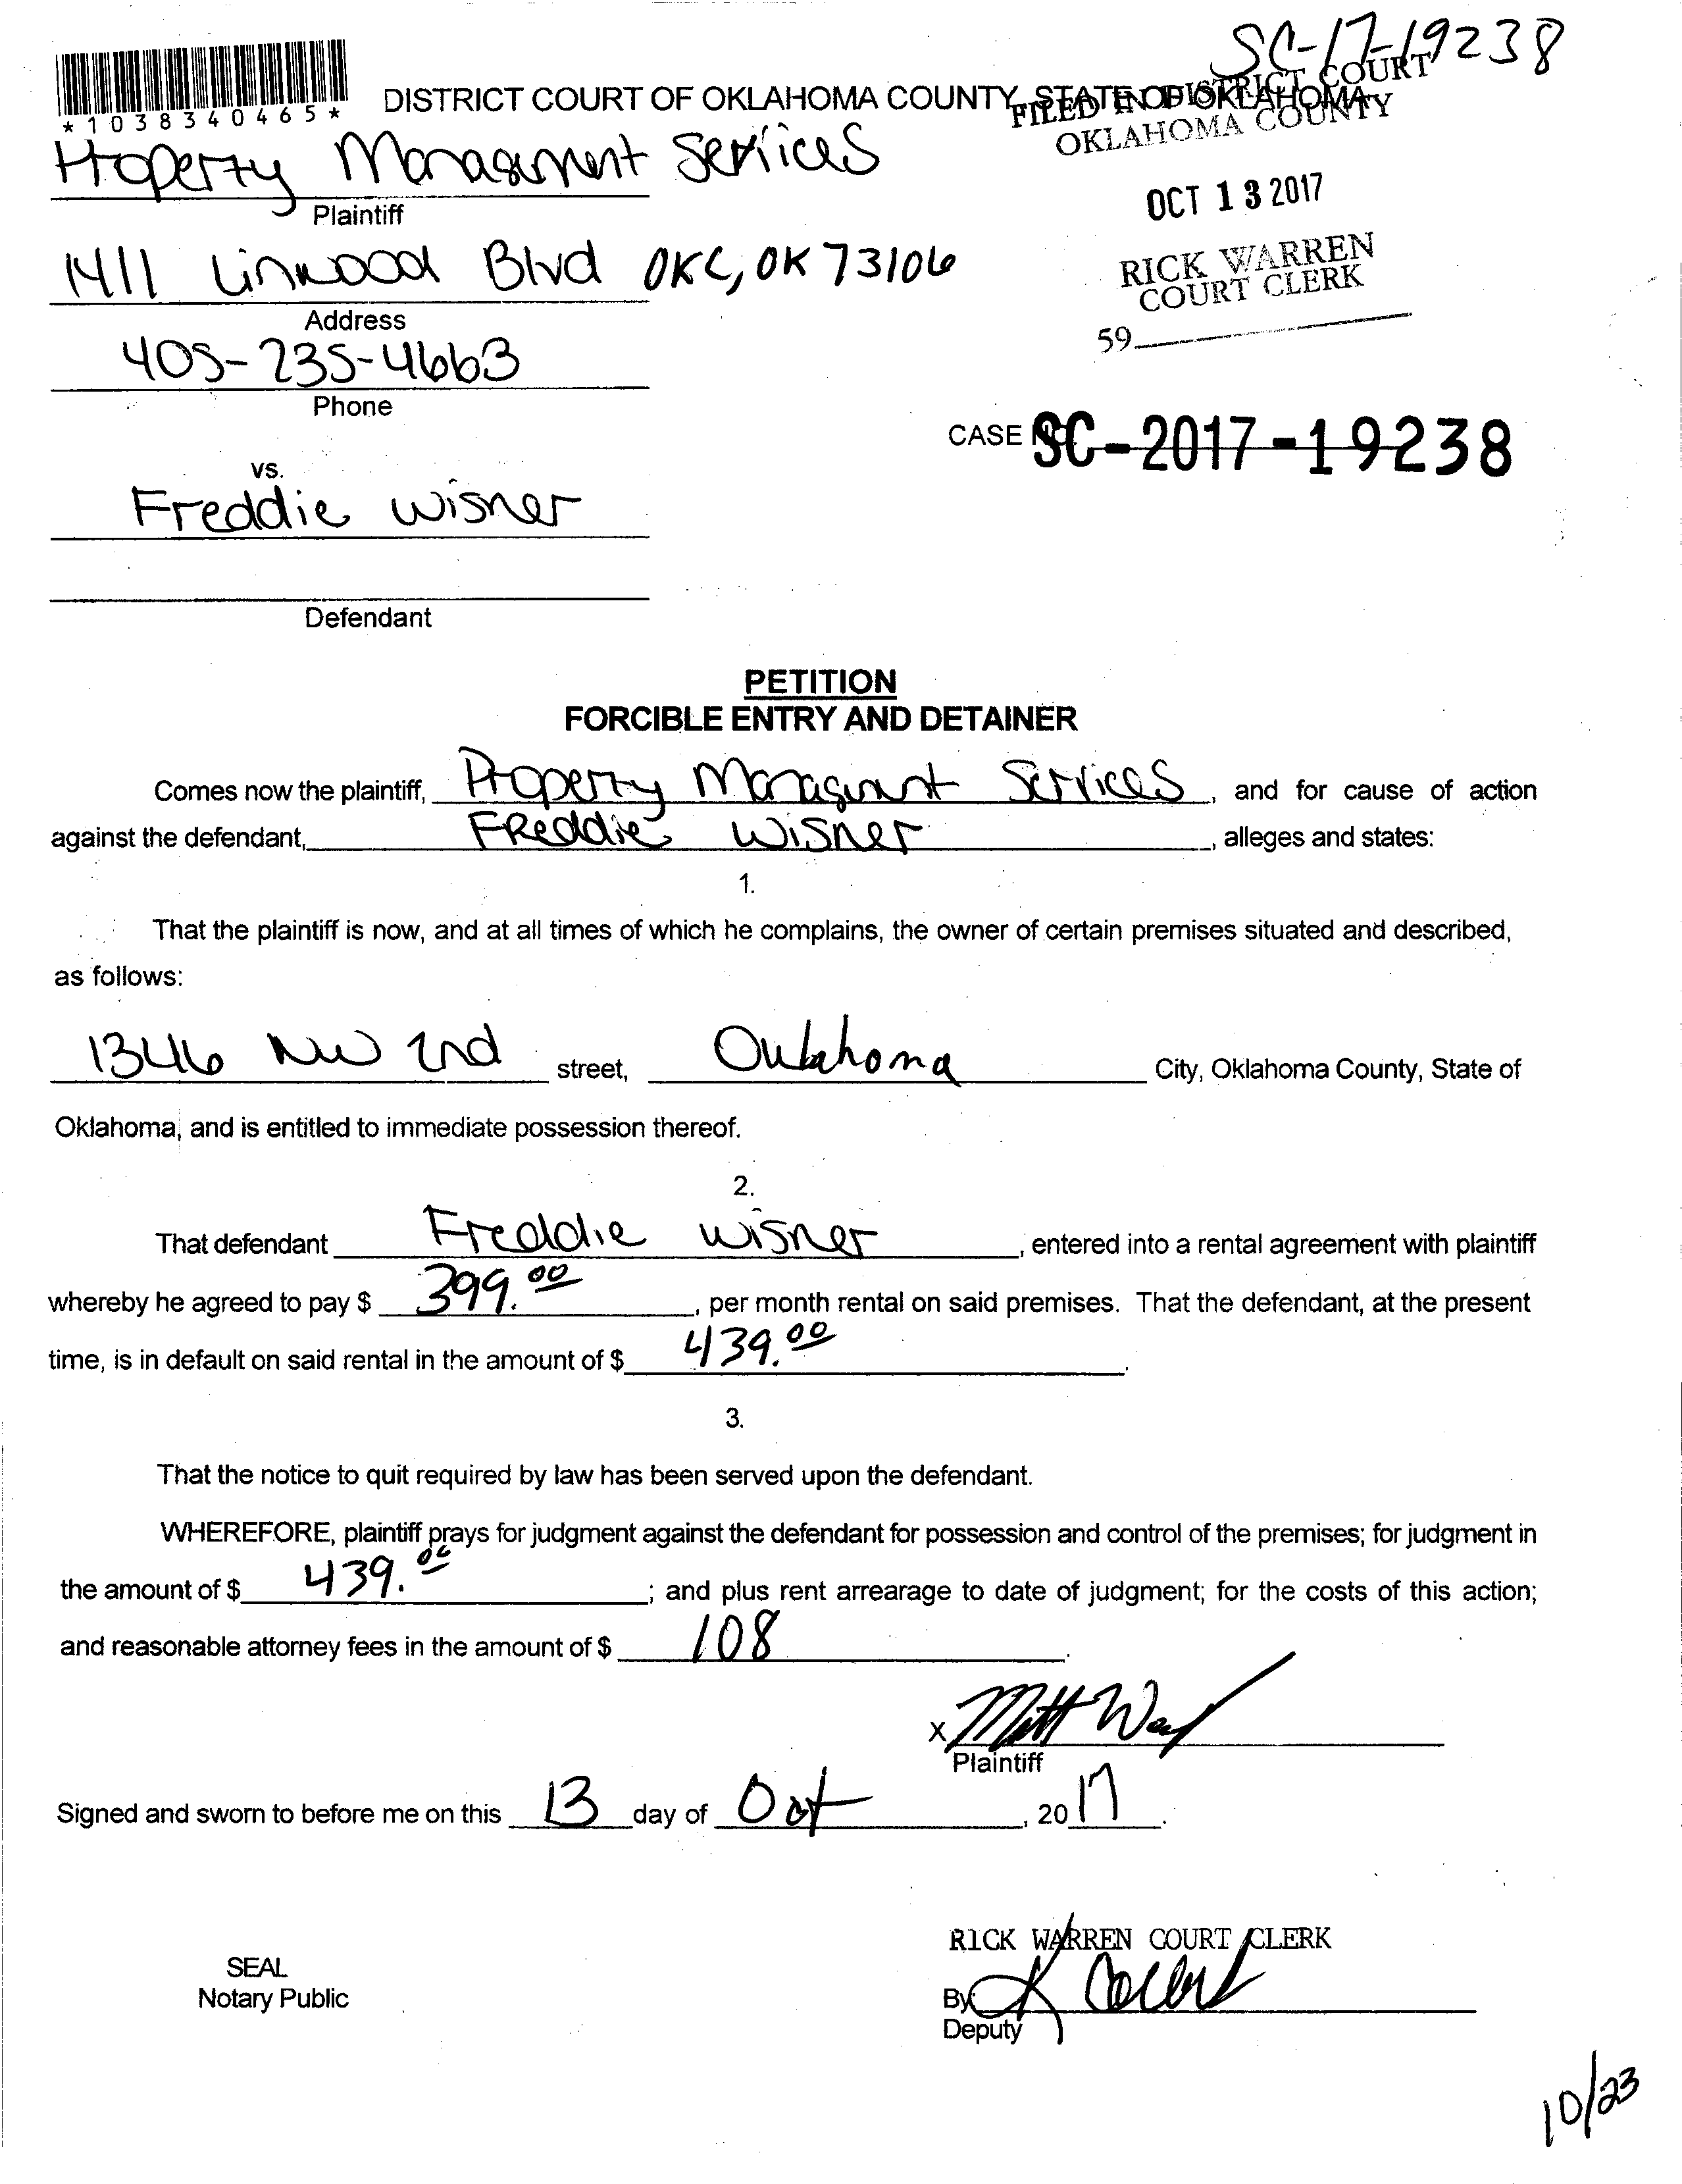 SC-17-19238
*1038340465*
DISTRICT COURT OF OKLAHOMA COUNTY, STATE OF OKLAHOMA
FILED IN DISTRICT COURT
OKLAHOMA COUNTY
Property Management Services
Plaintiff
OCT 13 2017
1411 Linwood Blvd OKC, OK 73106
Address
RICK WARREN
COURT CLERK
59
405-235-4663
Phone
CASE NO. SC-2017-19238
vs.
Freddie Wisner
Defendant
PETITION
FORCIBLE ENTRY AND DETAINER
Comes now the plaintiff, Property Management Services, and for cause of action
against the defendant, Freddie Wisner, alleges and states:
1.
That the plaintiff is now, and at all times of which he complains, the owner of certain premises situated and described,
as follows:
1346 NW 2nd street, Oklahoma City, Oklahoma County, State of
Oklahoma, and is entitled to immediate possession thereof.
2.
That defendant Freddie Wisner, entered into a rental agreement with plaintiff
whereby he agreed to pay $ 399.00, per month rental on said premises. That the defendant, at the present
time, is in default on said rental in the amount of $ 439.00.
3.
That the notice to quit required by law has been served upon the defendant.
WHEREFORE, plaintiff prays for judgment against the defendant for possession and control of the premises; for judgment in
the amount of $ 439.00; and plus rent arrearage to date of judgment; for the costs of this action;
and reasonable attorney fees in the amount of $ 108.
X Matt
Plaintiff
Signed and sworn to before me on this 13 day of Oct, 2017.
RICK WARREN COURT CLERK
SEAL
Notary Public
By K
Deputy
10/23